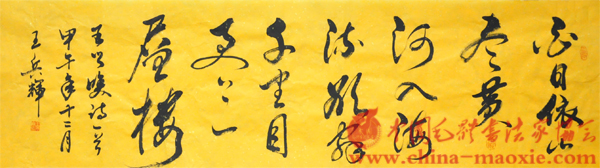 白日依山
尽黄
河入海
流欲穷
千里目
更上一
层楼
王之涣诗一首
甲午年十二月
王兵輝
中国毛體書法家協会
www.china-maoxie.com